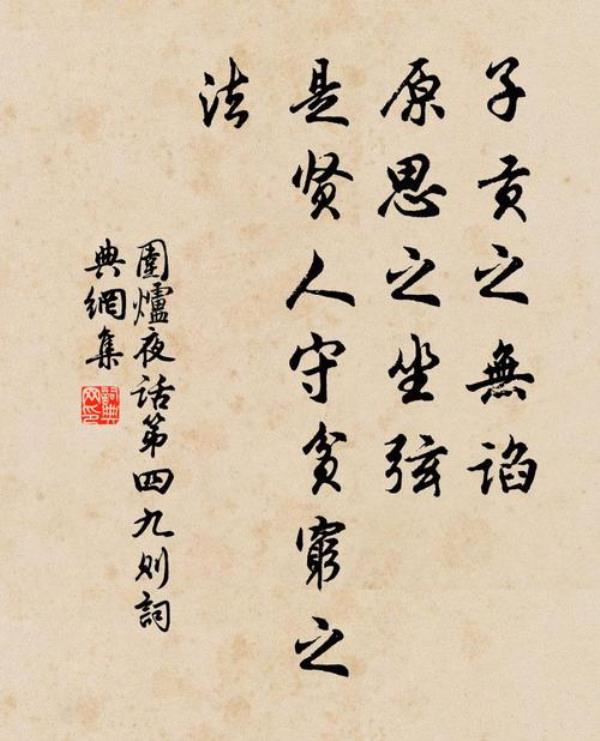 子贡之無谄
原思之坐弦
是贤人守贫窮之
法
圍爐夜话第四九则詞
典網集
詞典
网印